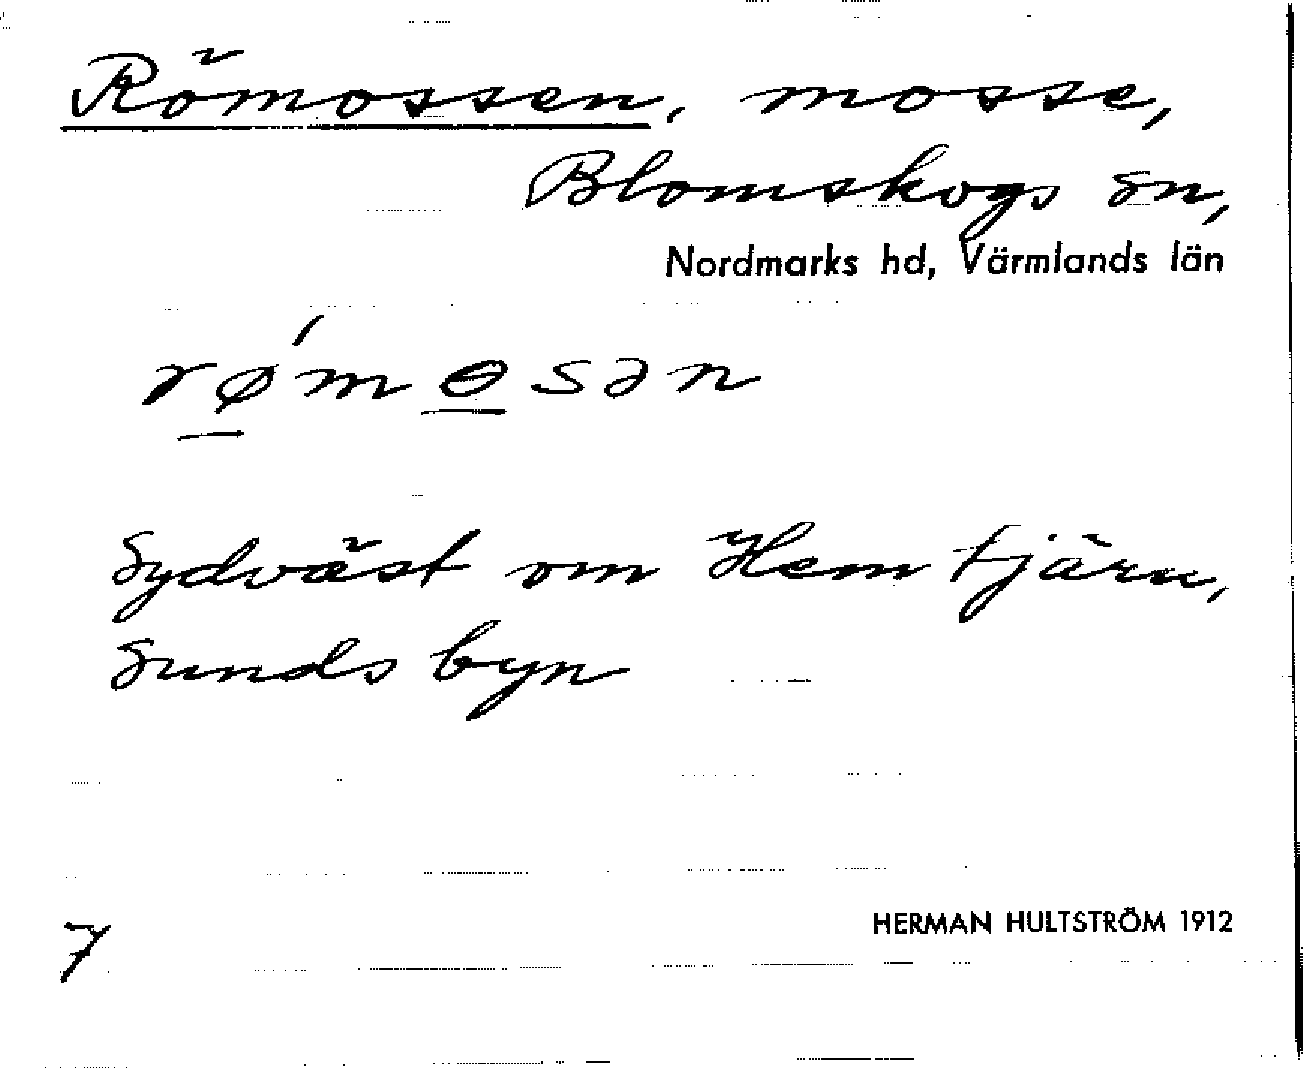 Römossen, mosse,
Blomskogs sn,
Nordmarks hd, Värmlands län
rǿ̲mɵ̲sən
Sydväst om Hemtjärn,
Sundsbyn
7
HERMAN HULTSTRÖM 1912